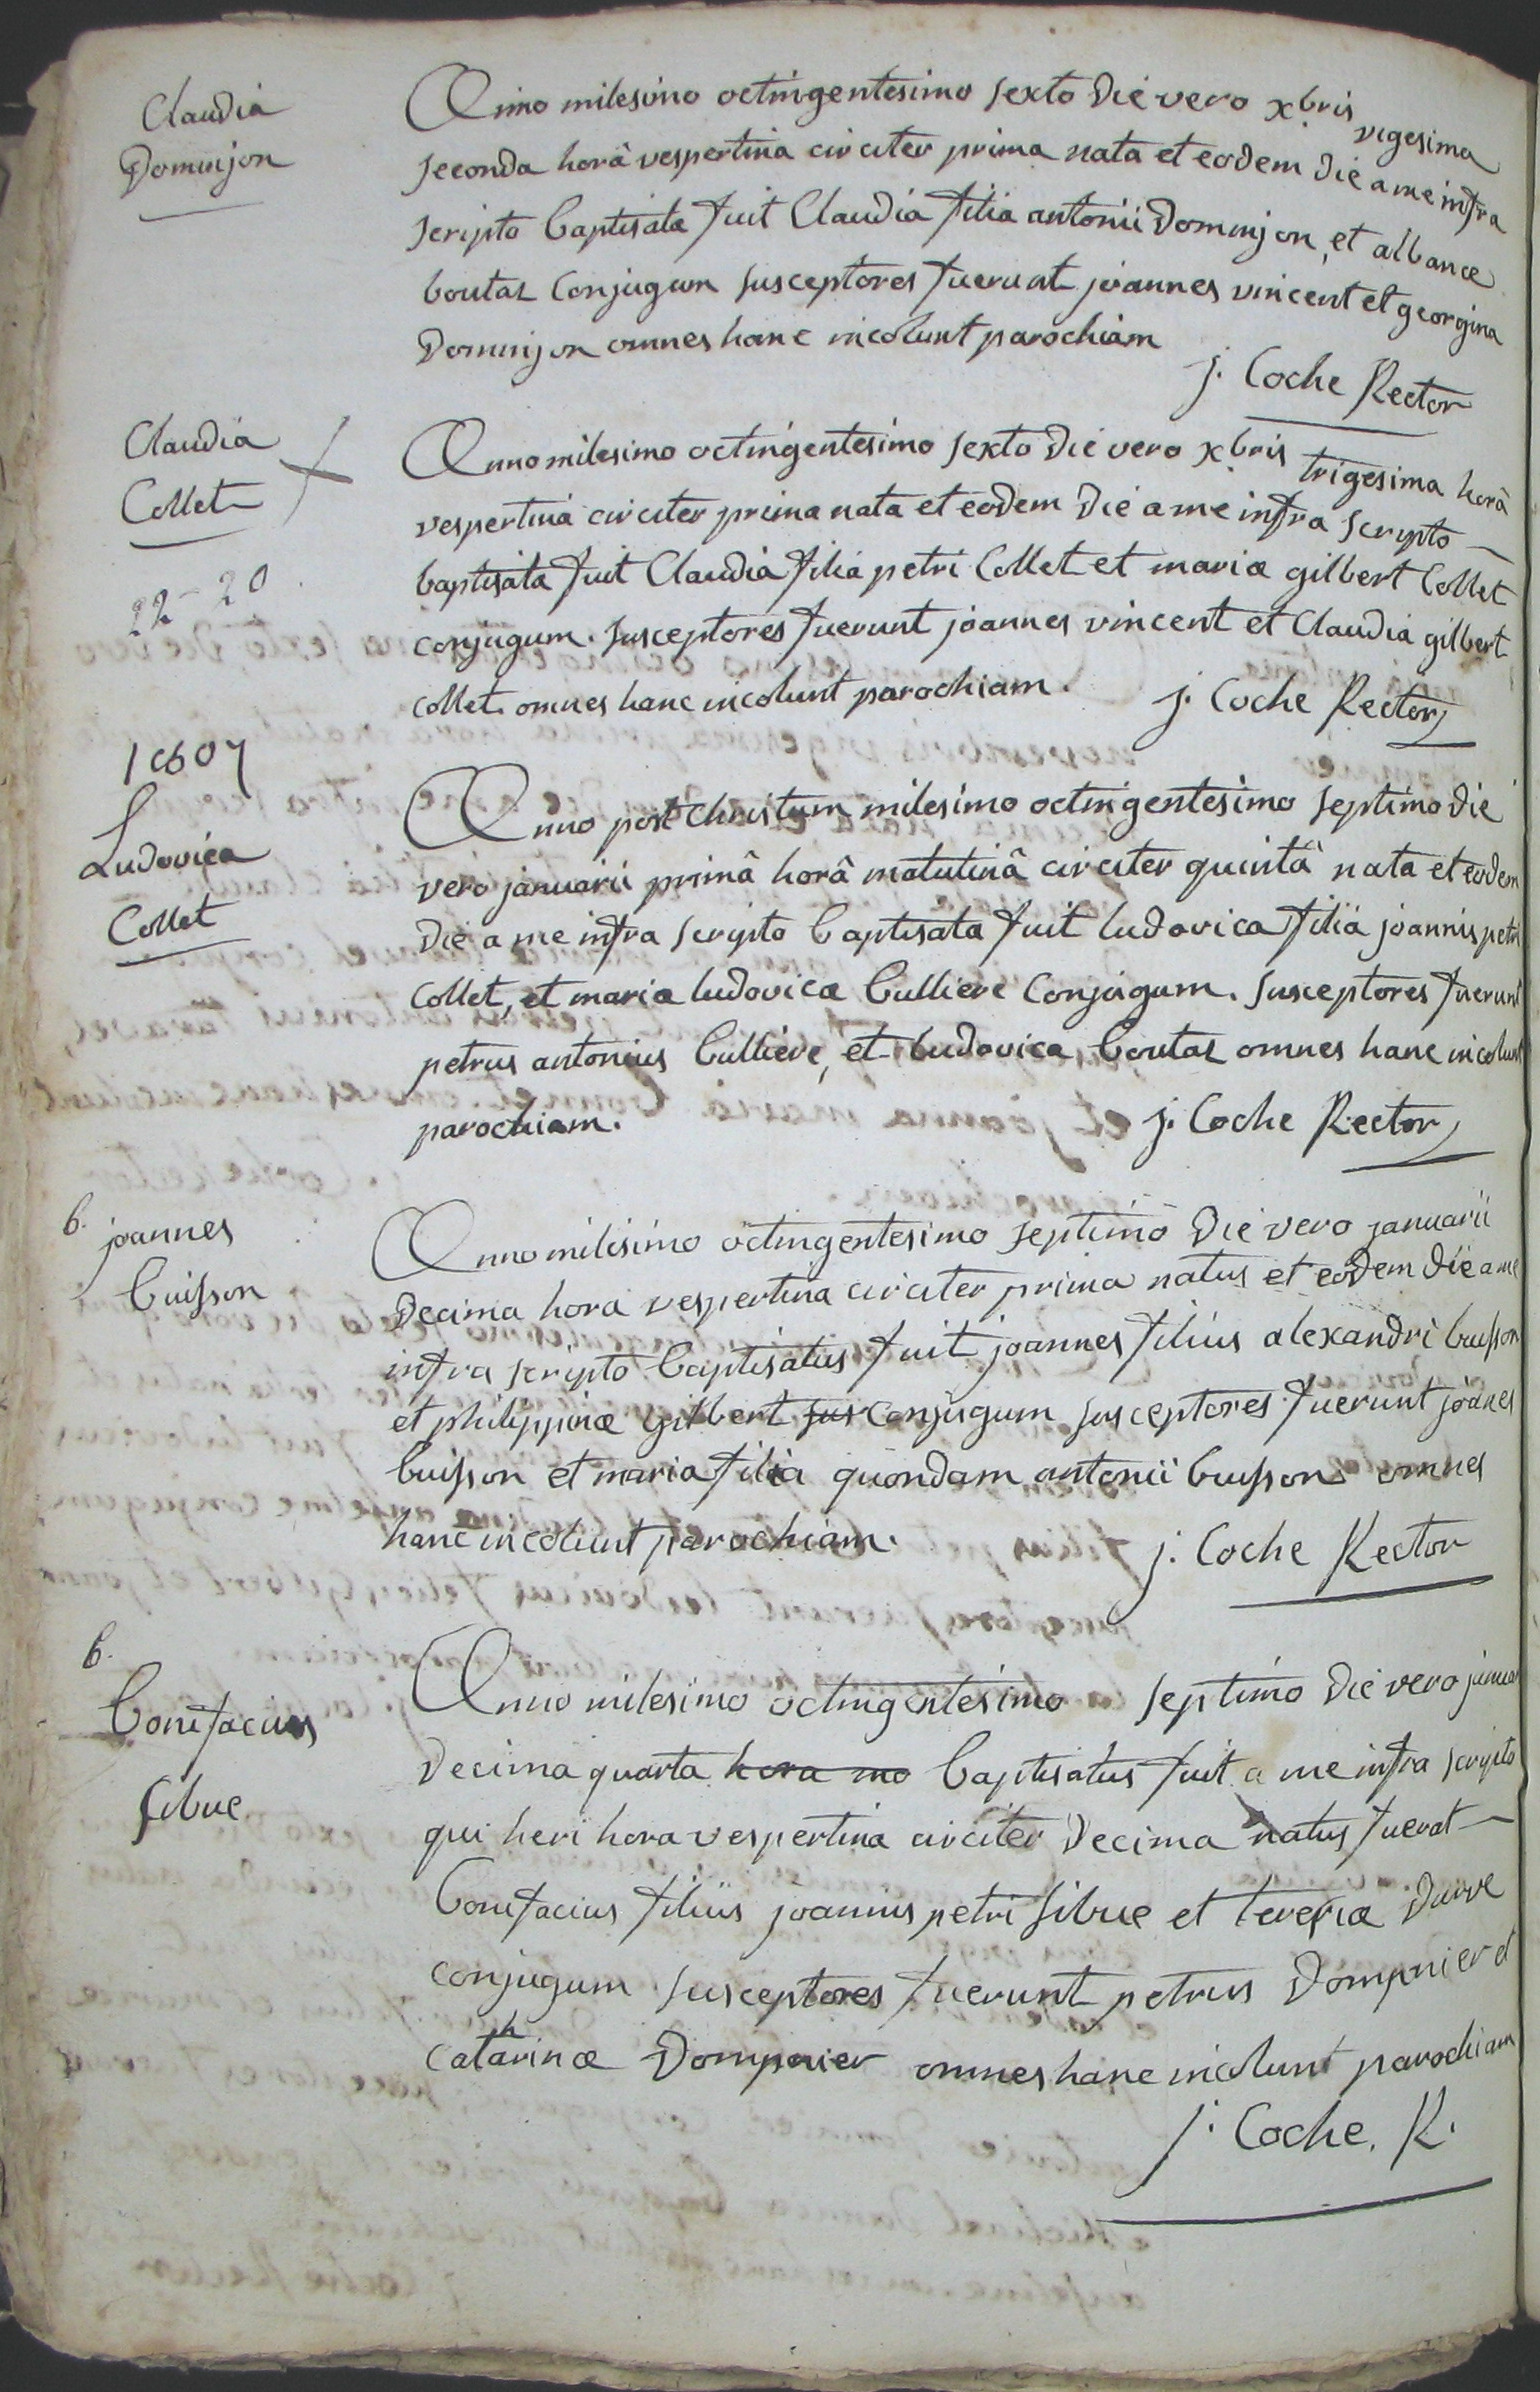 Claudia
Dominjon
Anno milesimo octingentesimo sexto die vero xbris vigesima
seconda horâ vespertina circiter prima nata et eodem die a me infra
scripto baptisata fuit Claudia filia antonii Dominjon, et albanæ
boutaz Conjugum susceptores fuerunt joannes vincent et georgina
Dominjon omnes hanc incolunt parochiam
j. Coche Rector
Claudia
Collet
22-20
Anno milesimo octingentesimo sexto die vero xbris trigesima horâ
vespertina circiter prima nata et eodem die a me infra scripto
baptisata fuit Claudia filia petri Collet et mariæ gilbert Collet
conjugum. susceptores fuerunt joannes vincent et Claudia gilbert
collet. omnes hanc incolunt parochiam.
j. Coche Rector
1807
Ludovica
Collet
Anno post christum milesimo octingentesimo septimo die
vero januarii primâ horâ matutinâ circiter quintâ nata et eodem
die a me infra scripto baptisata fuit ludovica filia joannis petri
Collet, et maria ludovicæ bulliere Conjugum. susceptores fuerunt
petrus antonius bulliere, et ludovica boutaz omnes hanc incolunt
parochiam.
j. Coche Rector
b.
joannes
buisson
Anno milesimo octingentesimo septimo die vero januarii
decima hora vespertina circiter prima natus et eodem die a me
infra scripto baptisatus fuit joannes filius alexandri buisson
et philippinæ gilbert sus conjugum susceptores fuerunt joanes
buisson et maria filia quondam antonii buisson omnes
hanc incolunt parochiam.
j. Coche Rector
b.
bonifacius
sibue
Anno milesimo octingentesimo septimo die vero januar
decima quarta hora ma baptisatus fuit a me infra scripto
qui heri hora vespertina circiter decima natus fuerat
bonifacius filius joannis petri sibue et teresiæ durve
conjugum susceptores fuerunt petrus Dompnier et
catharinæ Dompnier omnes hanc incolunt parochiam
j. Coche. R.